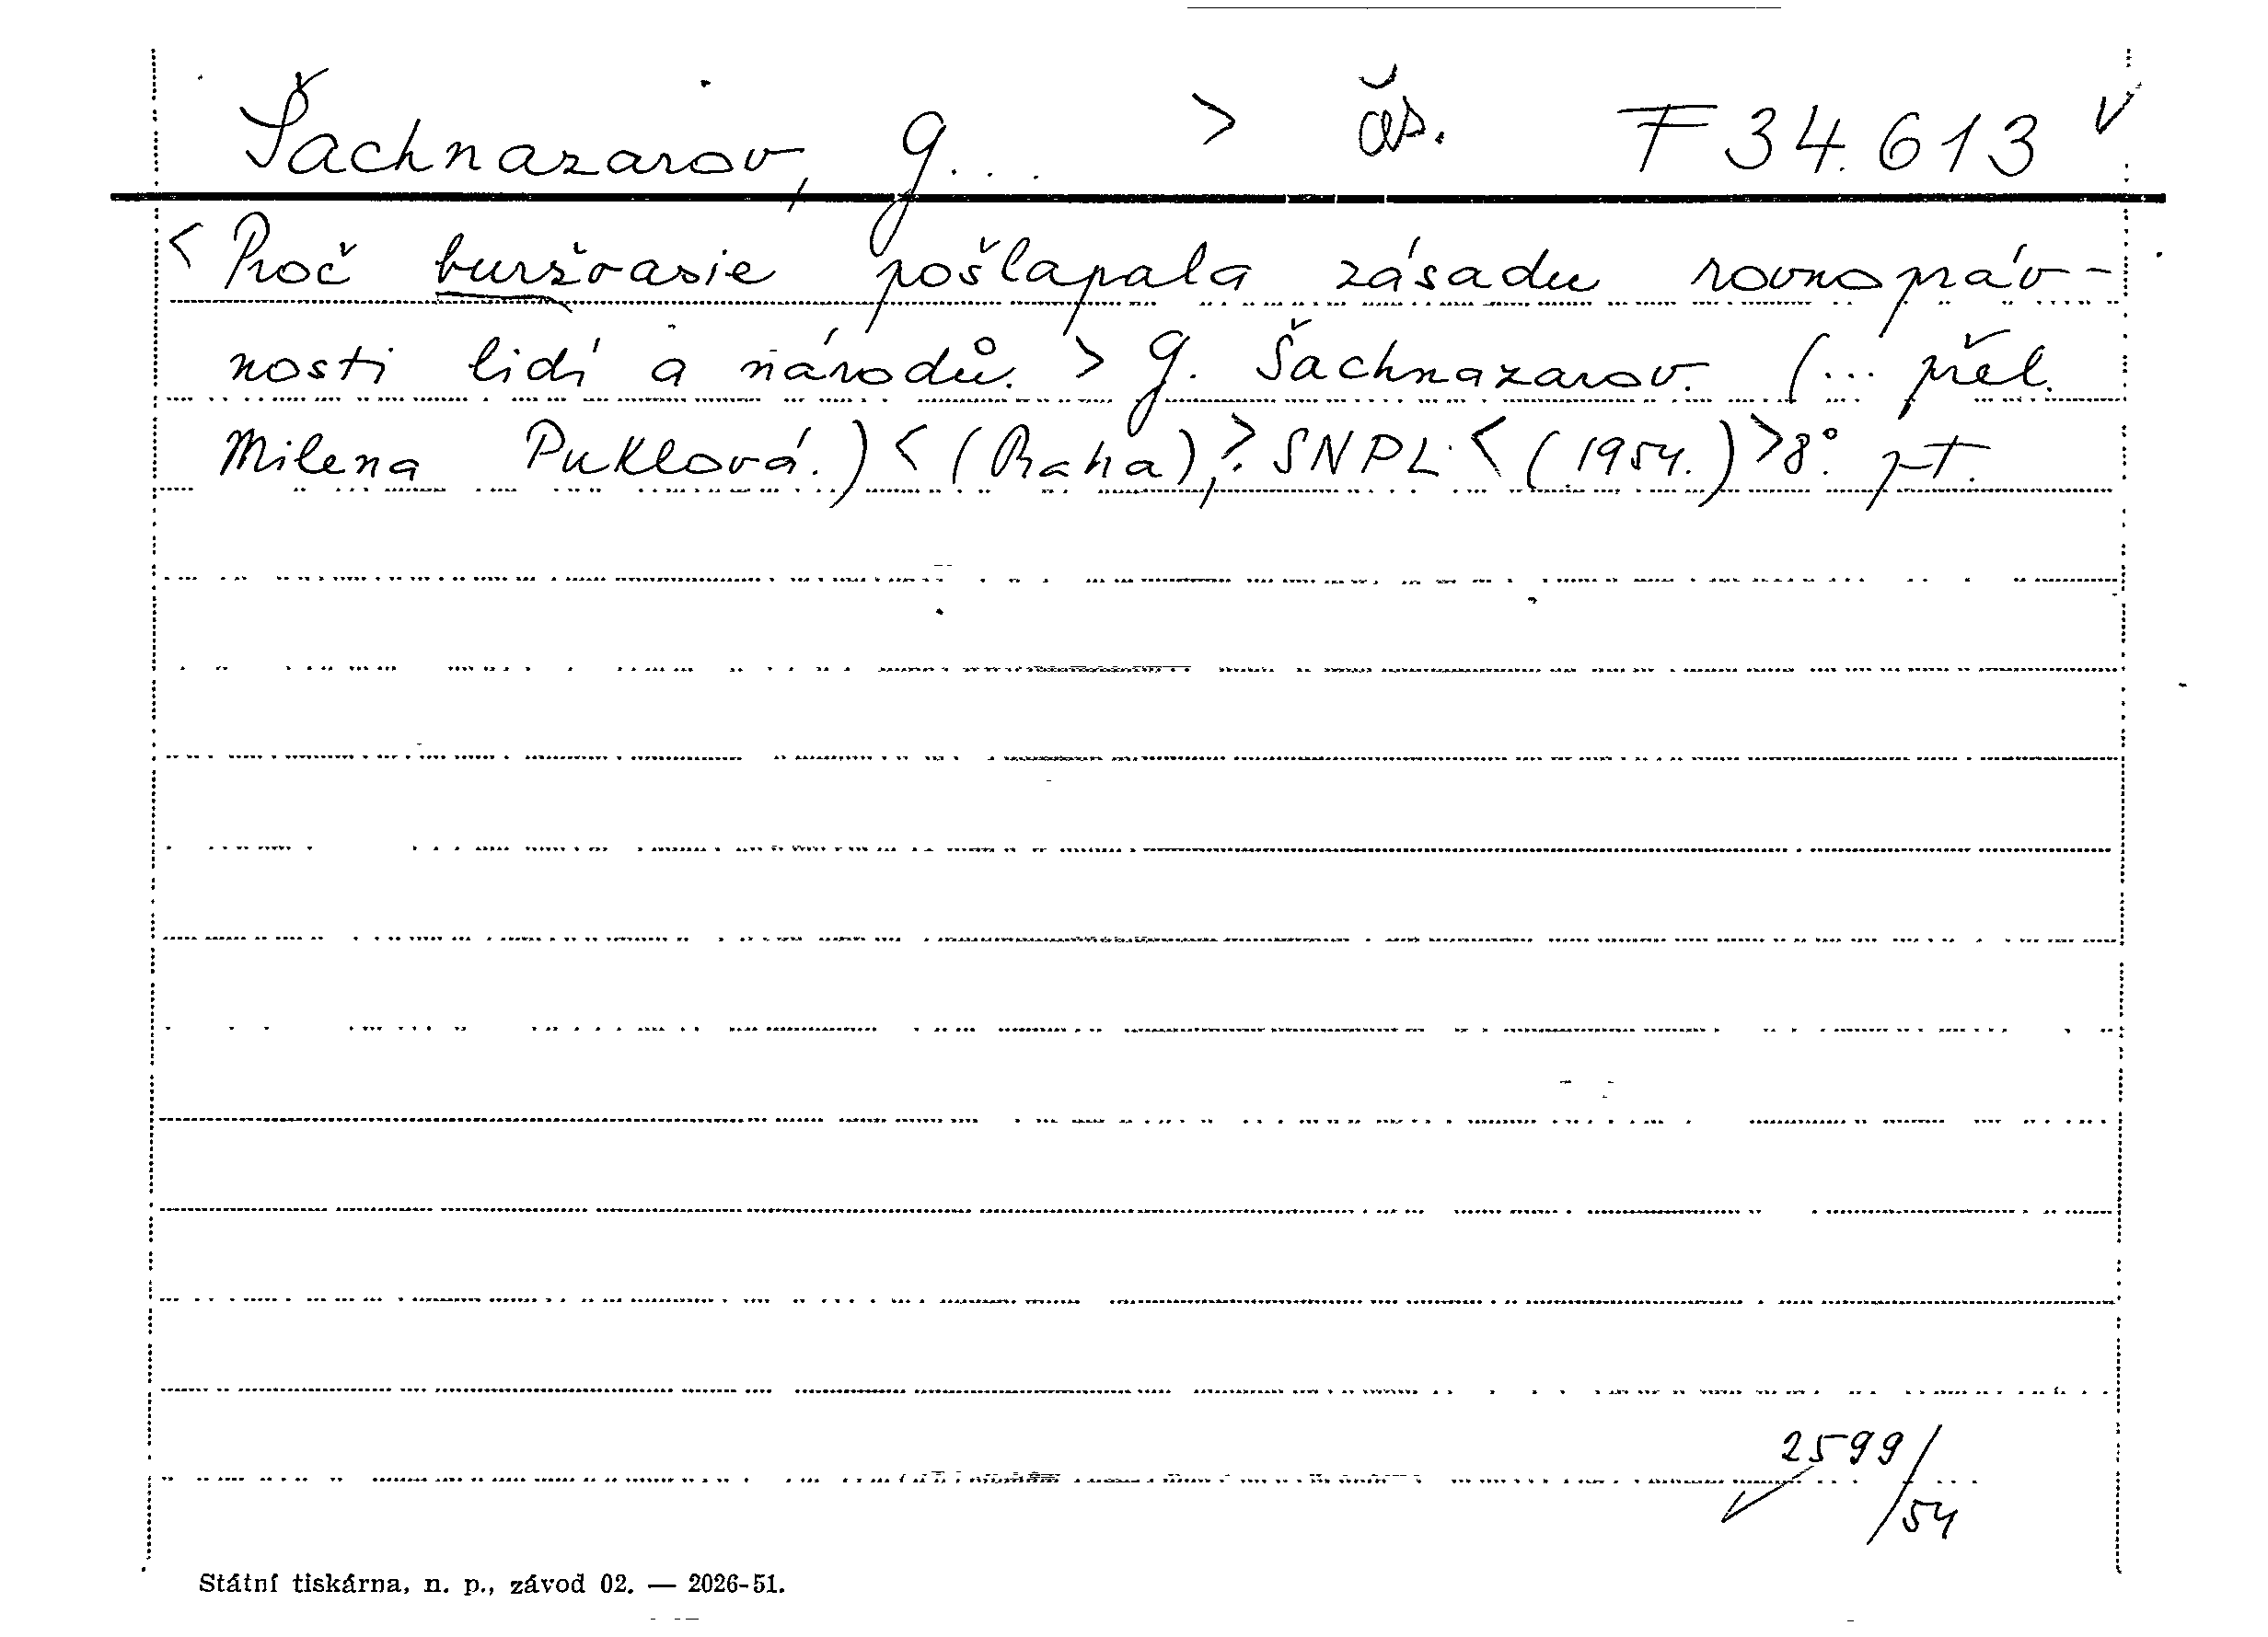 Šachnazarov, G... > čs. F 34.613 v
< Proč buržoasie pošlapala zásadu rovnopráv-
nosti lidí a národů. > G. Šachnazarov. (... přel.
Milena Puklová.) < (Praha), > SNPL. < (1954.) > 8° pt.
2599/
/54
Státní tiskárna, n. p., závod 02. — 2026-51.